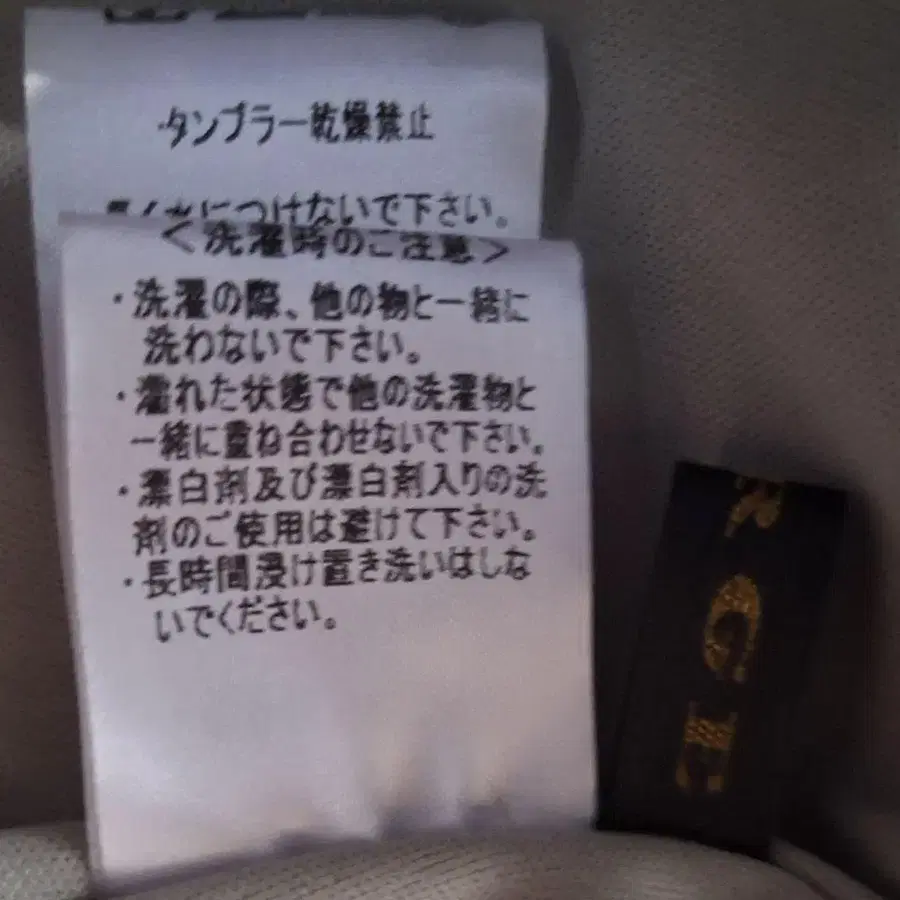 ・タンブラー乾燥禁止
長く水につけないで下さい。
＜洗濯時のご注意＞
・洗濯の際、他の物と一緒に
洗わないで下さい。
・濡れた状態で他の洗濯物と
一緒に重ね合わせないで下さい。
・漂白剤及び漂白剤入りの洗
剤のご使用は避けて下さい。
・長時間浸け置き洗いはしな
いでください。